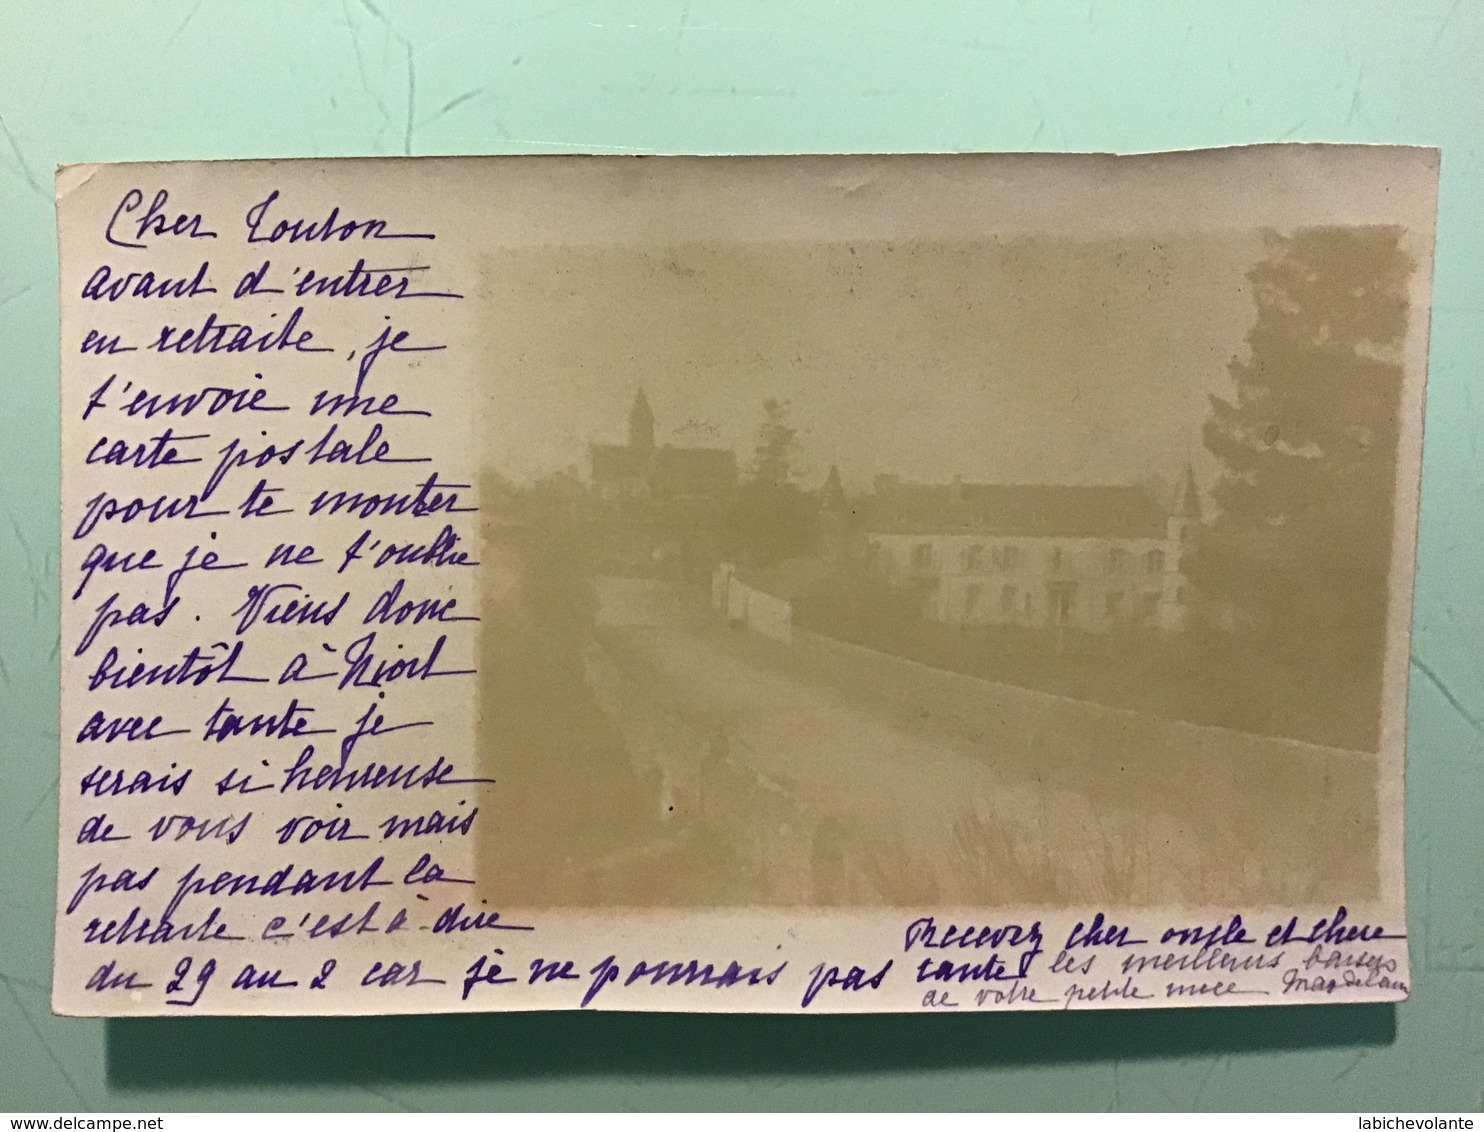 Cher Touton
avant d'entrer
en retraite, je
t'envoie une
carte postale
pour te montrer
que je ne t'oublie
pas. Viens donc
bientôt à Niort
avec tante je
serais si heureuse
de vous voir mais
pas pendant la
retraite c'est à dire
du 29 au 2 car je ne pourrais pas
Recevez cher oncle et chere
tante les meilleurs baisers
de votre petite niece Magdelaine
delcampe.net
labichevolante